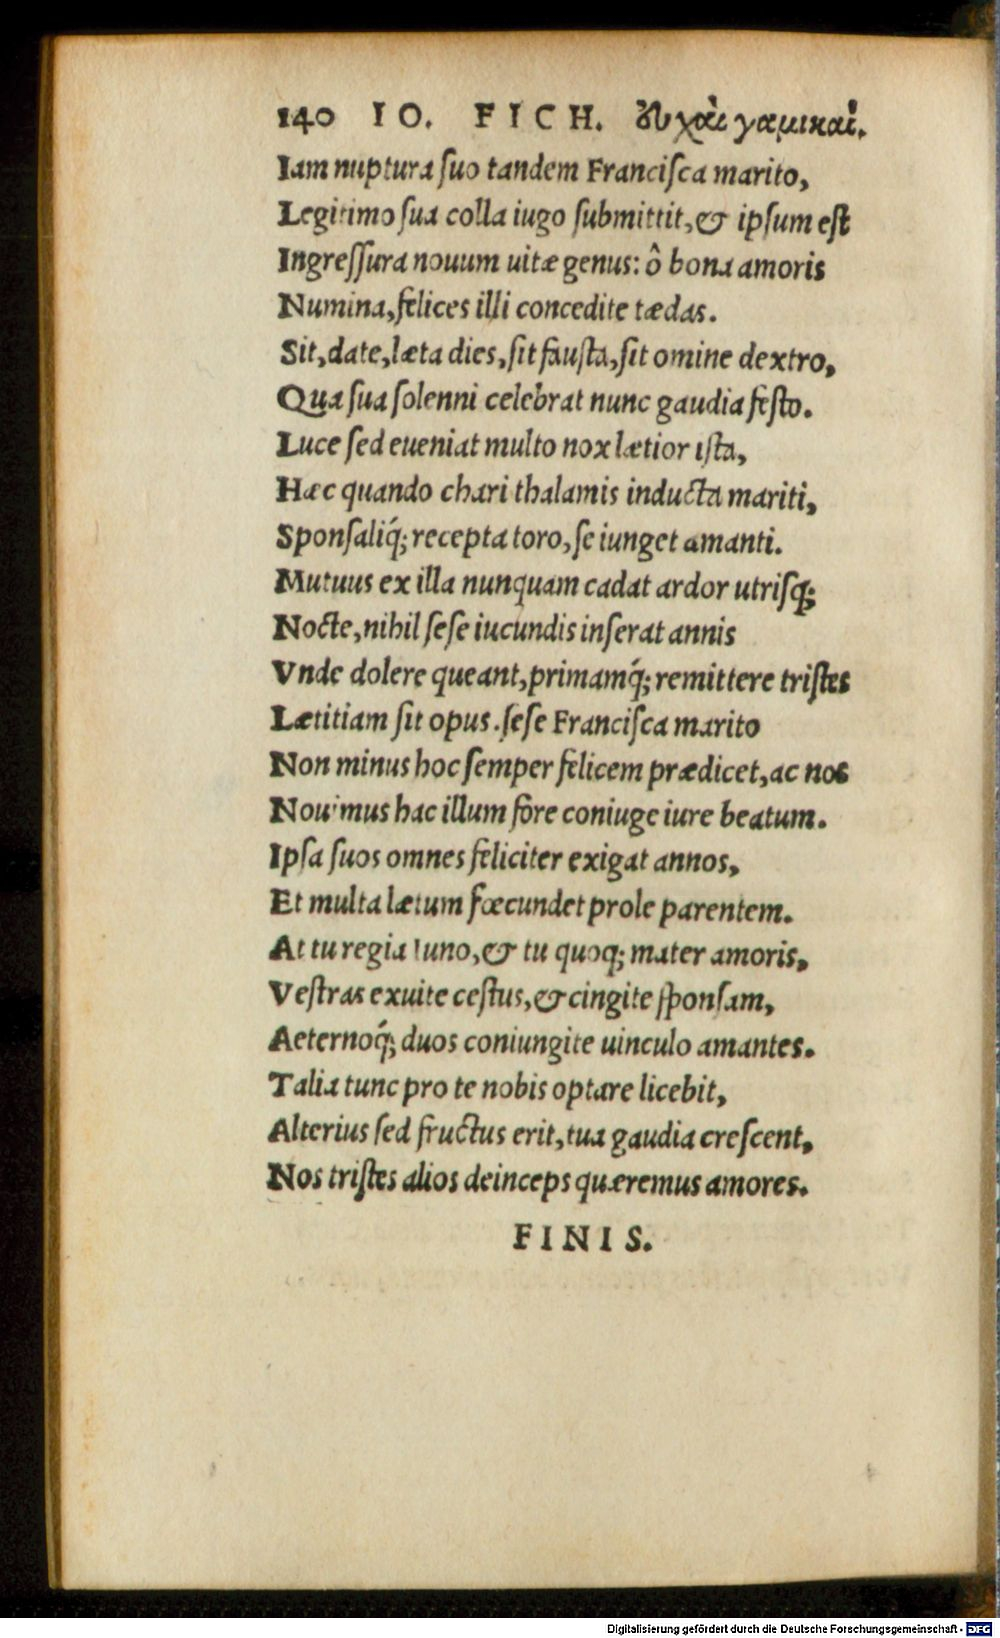 140 IO. FICH. Εὐχαὶ γαμικαί.
Iam nuptura suo tandem Francisca marito,
Legitimo sua colla iugo submittit, & ipsum est
Ingressura nouum uitæ genus: ô bona amoris
Numina, felices illi concedite tædas.
Sit, date, læta dies, sit fausta, sit omine dextro,
Qua sua solenni celebrat nunc gaudia festo.
Luce sed eueniat multo nox lætior ista,
Hæc quando chari thalamis inducta mariti,
Sponsaliq́; recepta toro, se iunget amanti.
Mutuus ex illa nunquam cadat ardor utrisq;
Nocte, nihil sese iucundis inserat annis
Vnde dolere queant, primamq́; remittere tristes
Lætitiam sit opus. sese Francisca marito
Non minus hoc semper felicem prædicet, ac nos
Nouimus hac illum fore coniuge iure beatum.
Ipsa suos omnes feliciter exigat annos,
Et multa lætum fœcundet prole parentem.
At tu regia Iuno, & tu quoq; mater amoris,
Vestras exuite cestus, & cingite sponsam,
Aeternoq́; duos coniungite uinculo amantes.
Talia tunc pro te nobis optare licebit,
Alterius sed fructus erit, tua gaudia crescent,
Nos tristes alios deinceps quæremus amores.
FINIS.
Digitalisierung gefördert durch die Deutsche Forschungsgemeinschaft - DFG